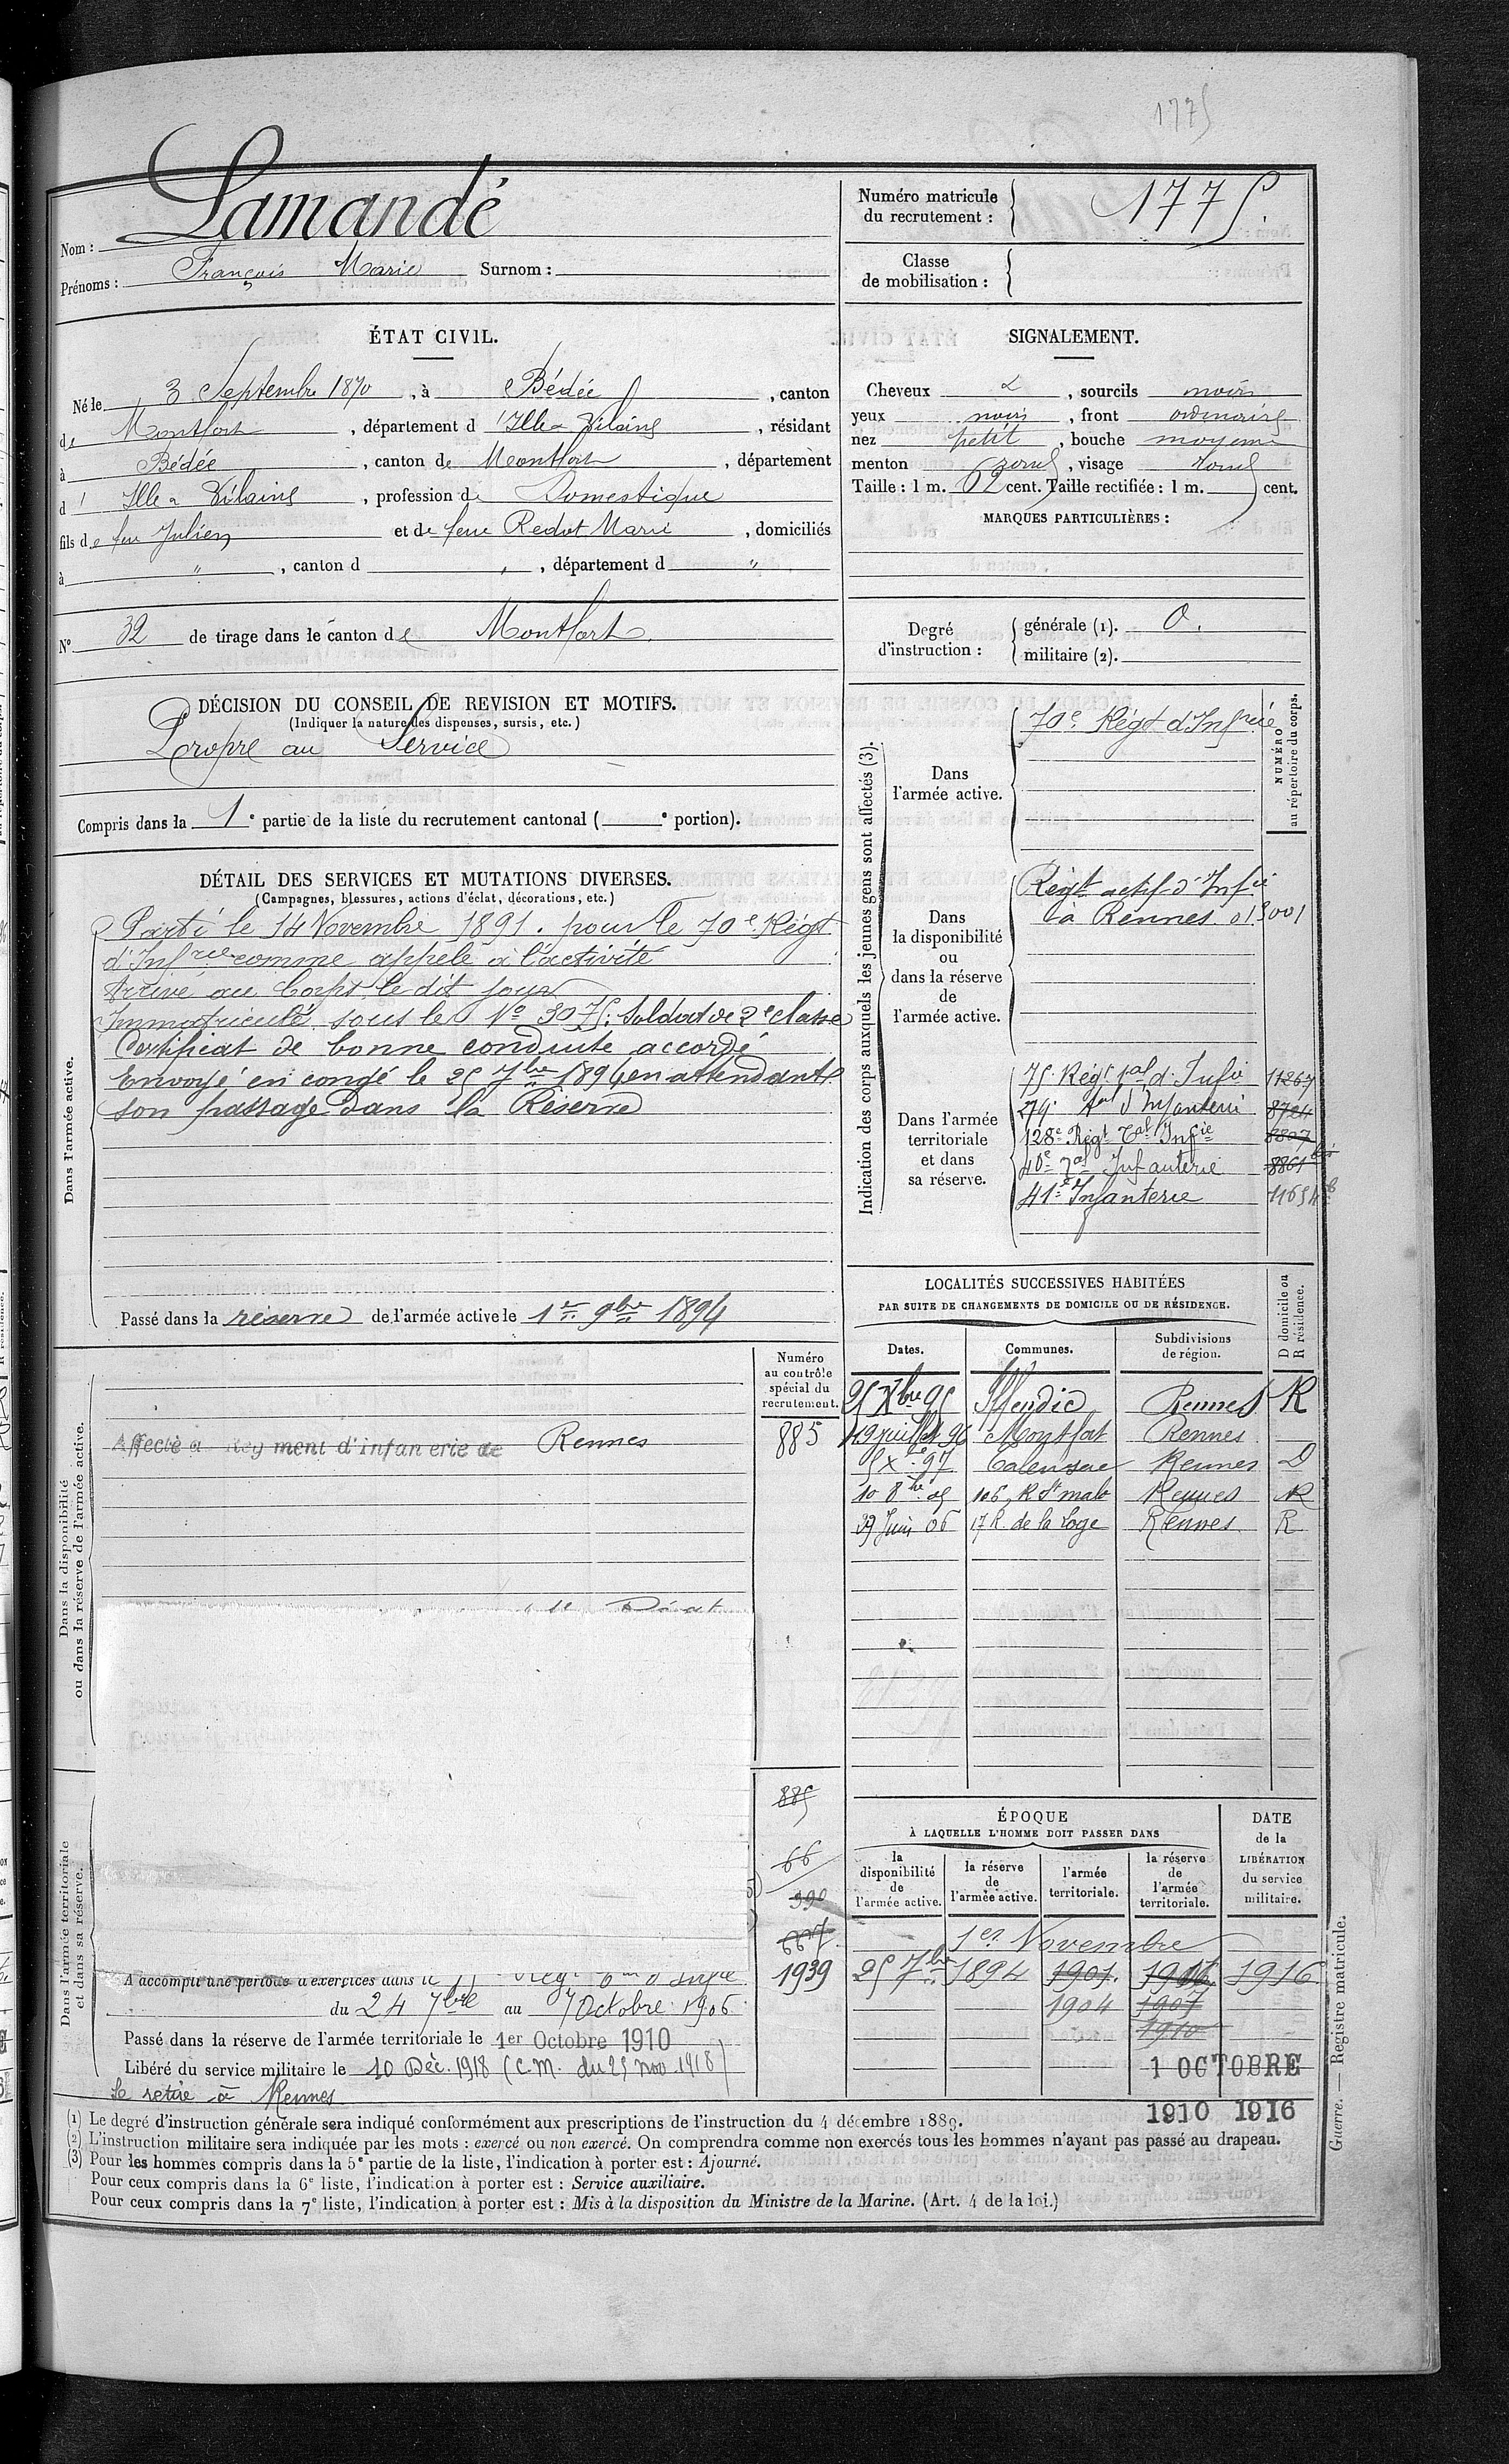 1775
Nom : Lamandé
Prénoms : François Marie Surnom :
Numéro matricule du recrutement : 1775.
Classe de mobilisation :
ÉTAT CIVIL.
Né le 3 Septembre 1870, à Bédée, canton
de Montfort, département d'Ille & Vilaine, résidant
à Bédée, canton de Montfort, département
d'Ille & Vilaine, profession de Domestique
fils de feu Julien et de feue Redot Marie, domiciliés
à " , canton d " , département d "
N° 32 de tirage dans le canton de Montfort.
SIGNALEMENT.
Cheveux & , sourcils noirs
yeux noirs , front ordinaire
nez petit , bouche moyenne
menton rond , visage rond
Taille : 1 m. 62 cent. Taille rectifiée : 1 m. cent.
MARQUES PARTICULIÈRES :
Degré d'instruction : générale (1). 0.
militaire (2).
DÉCISION DU CONSEIL DE REVISION ET MOTIFS.
(Indiquer la nature des dispenses, sursis, etc.)
Propre au Service
Compris dans la 1e partie de la liste du recrutement cantonal ( e portion).
DÉTAIL DES SERVICES ET MUTATIONS DIVERSES.
(Campagnes, blessures, actions d'éclat, décorations, etc.)
Dans l'armée active.
Parti le 14 Novembre 1891. pour le 70e Régt
d'Infrie comme appelé à l'activité
Arrivé au Corps le dit jour
Immatriculé sous le No 3075. Soldat de 2e classe
Certificat de bonne conduite accordé
Envoyé en congé le 25 7bre 1894 en attendant
son passage dans la Réserve
Passé dans la réserve de l'armée active le 1er 9bre 1894
Indication des corps auxquels les jeunes gens sont affectés (3).
NUMÉRO au répertoire du corps.
Dans l'armée active.
70e Régt d'Infrie
Dans la disponibilité ou dans la réserve de l'armée active.
Régt actif d'Infie
à Rennes 013001
Dans l'armée territoriale et dans sa réserve.
75 Régt tal d'Infie 11267
279 tal d'Infanterie 8724
128e Régt Tal Infie 8807
40e Tal Infanterie 8861 bis
41e Infanterie 11654
LOCALITÉS SUCCESSIVES HABITÉES
PAR SUITE DE CHANGEMENTS DE DOMICILE OU DE RÉSIDENCE.
D domicile ou R résidence.
Dates. Communes. Subdivisions de région.
25 Xbre 95 Iffendic Rennes R
19 juillet 96 Montfort Rennes
5 Xe 97 Talensac Rennes D
10 8bre 05 106, R. St malo Rennes R
29 Juin 06 17 R. de la Loge Rennes R
Dans la disponibilité ou dans la réserve de l'armée active.
Numéro au contrôle spécial du recrutement.
Affecté à Régiment d'infanterie de Rennes 885
Dans l'armée territoriale et dans sa réserve.
885
66
390
667
1939
A accompli une période d'exercices dans le
du 24 7bre au 7 Octobre 1906
Passé dans la réserve de l'armée territoriale le 1er Octobre 1910
Libéré du service militaire le 10 Déc. 1918 (C.M. du 25 nov 1918)
Se retire à Rennes
ÉPOQUE
À LAQUELLE L'HOMME DOIT PASSER DANS
DATE de la LIBÉRATION du service militaire.
la disponibilité de l'armée active.
la réserve de l'armée active.
l'armée territoriale.
la réserve de l'armée territoriale.
1er Novembre
25 7bre 1894 1901. 1916
1904 1907
1910
1 OCTOBRE
1910 1916
(1) Le degré d'instruction générale sera indiqué conformément aux prescriptions de l'instruction du 4 décembre 1889.
(2) L'instruction militaire sera indiquée par les mots : exercé ou non exercé. On comprendra comme non exercés tous les hommes n'ayant pas passé au drapeau.
(3) Pour les hommes compris dans la 5e partie de la liste, l'indication à porter est : Ajourné.
Pour ceux compris dans la 6e liste, l'indication à porter est : Service auxiliaire.
Pour ceux compris dans la 7e liste, l'indication à porter est : Mis à la disposition du Ministre de la Marine. (Art. 4 de la loi.)
Guerre. — Registre matricule.